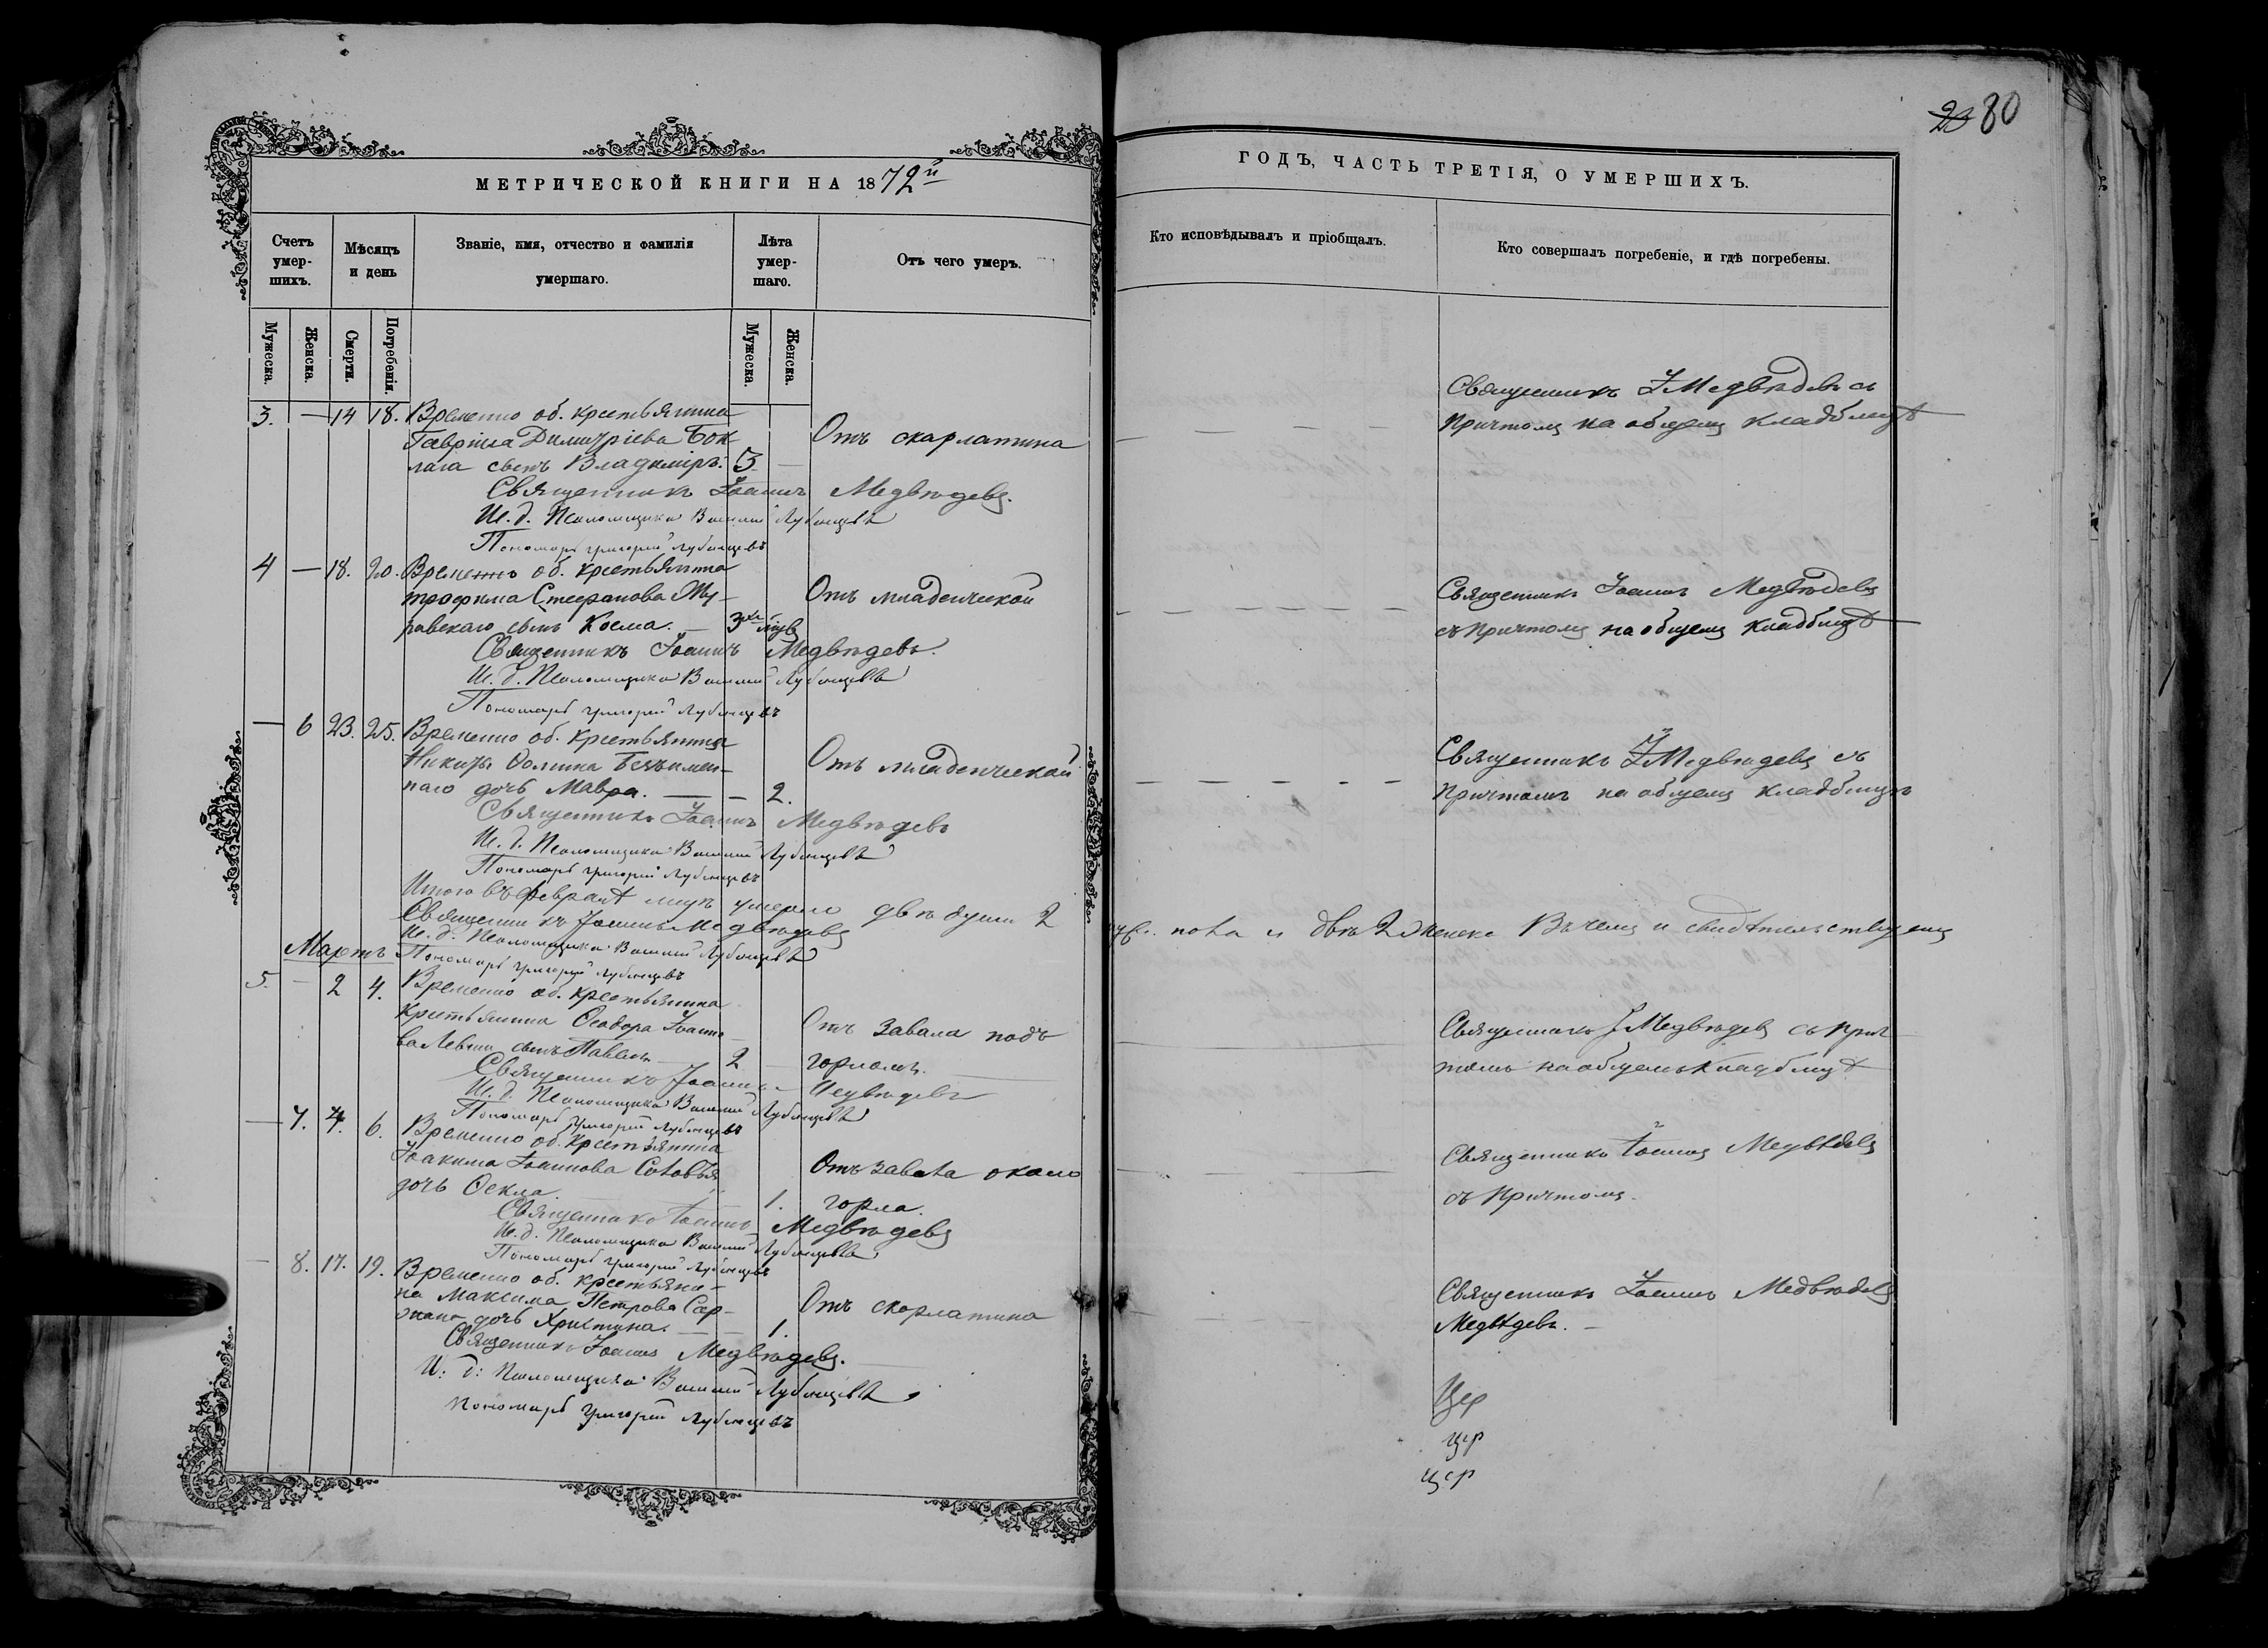 20 80
МЕТРИЧЕСКОЙ КНИГИ НА 1872й
ГОДЪ, ЧАСТЬ ТРЕТІЯ, О УМЕРШИХЪ.
Счетъ умер-шихъ.
Мѣсяцъ и день
Званіе, имя, отчество и фамилія умершаго.
Лѣта умер-шаго.
Отъ чего умеръ.
Кто исповѣдывалъ и пріобщалъ.
Кто совершалъ погребеніе, и гдѣ погребены.
Мужеска. Женска. Смерти. Погребенія. Мужеска. Женска.
3. — 14 18. Временно об. крестьянина
Гавріила Димитріева Бок-
лага сынъ Владиміръ. 3. —
Отъ скарлатина
Священникъ І Медвѣдевъ съ
причтомъ на общемъ кладбищѣ
Священникъ Іоаннъ Медвѣдевъ.
И. д. Псаломщика Василій Лубенцевъ
Пономарь Григорій Лубенцевъ
4 — 18. 20. Временно об. крестьянина
Трофима Стефанова Му-
равскаго сынъ Косма. — 3хъ
Отъ младенческой
Священникъ Іоаннъ Медвѣдевъ
съ причтомъ на общемъ кладбищѣ
Священникъ Іоаннъ Медвѣдевъ.
И. д. Псаломщика Василій Лубенцевъ
Пономарь Григорій Лубенцевъ
— 6 23. 25. Временно об. крестьянина
Никиты Фомина Безъимен-
наго дочь Мавра. — — 2.
Отъ младенческой
Священникъ І Медвѣдевъ съ
причтомъ на общемъ кладбищѣ
Священникъ Іоаннъ Медвѣдевъ
И. д. Псаломщика Василій Лубенцевъ
Пономарь Григорій Лубенцевъ
Итого въ февралѣ умерло двѣ души 2
пола и двѣ 2 женска Въ чемъ и свидѣтельствуемъ
Священникъ Іоаннъ Медвѣдевъ
И. д. Псаломщика Василій Лубенцевъ
Пономарь Григорій Лубенцевъ
Мартъ
5. — 2 4. Временно об. крестьянина
крестьянина Ѳеодора Іоанно-
ва сынъ Павелъ 2
Отъ завала подъ
горломъ.
Священникъ І Медвѣдевъ съ прич-
томъ на общемъ кладбищѣ
Священникъ Іоаннъ Медвѣдевъ
И. д. Псаломщика Василій Лубенцевъ
Пономарь Григорій Лубенцевъ
— 7. 4. 6. Временно об. крестьянина
Іоакима Іоаннова
дочь Ѳекла. 1.
Отъ завала около
горла.
Священникъ Іоаннъ Медвѣдевъ
съ причтомъ.
Священникъ Іоаннъ Медвѣдевъ
И. д. Псаломщика Василій Лубенцевъ
Пономарь Григорій Лубенцевъ
— 8. 17. 19. Временно об. крестьяни-
на Максима Петрова Сар-
дочь Христина. — — 1.
Отъ скарлатина
Священникъ Іоаннъ Медвѣдевъ
Медвѣдевъ. —
Священникъ Іоаннъ Медвѣдевъ.
И: д: Псаломщика Василій Лубенцевъ
Пономарь Григорій Лубенцевъ
Цер
цер
цер